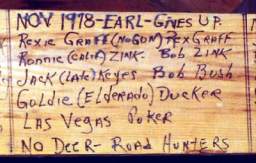 NOV 1978-EARL-GIVES UP.
Rexie GRAFF (NOGUN) REXGRAFF
Ronnie (CALIF) ZINK. Bob ZINK
JACK (LATE) Keyes Bob Bush
Goldie (ELdERADO) Ducker
LAS VEGAS POKER
NO DEER- ROAD HUNTERS